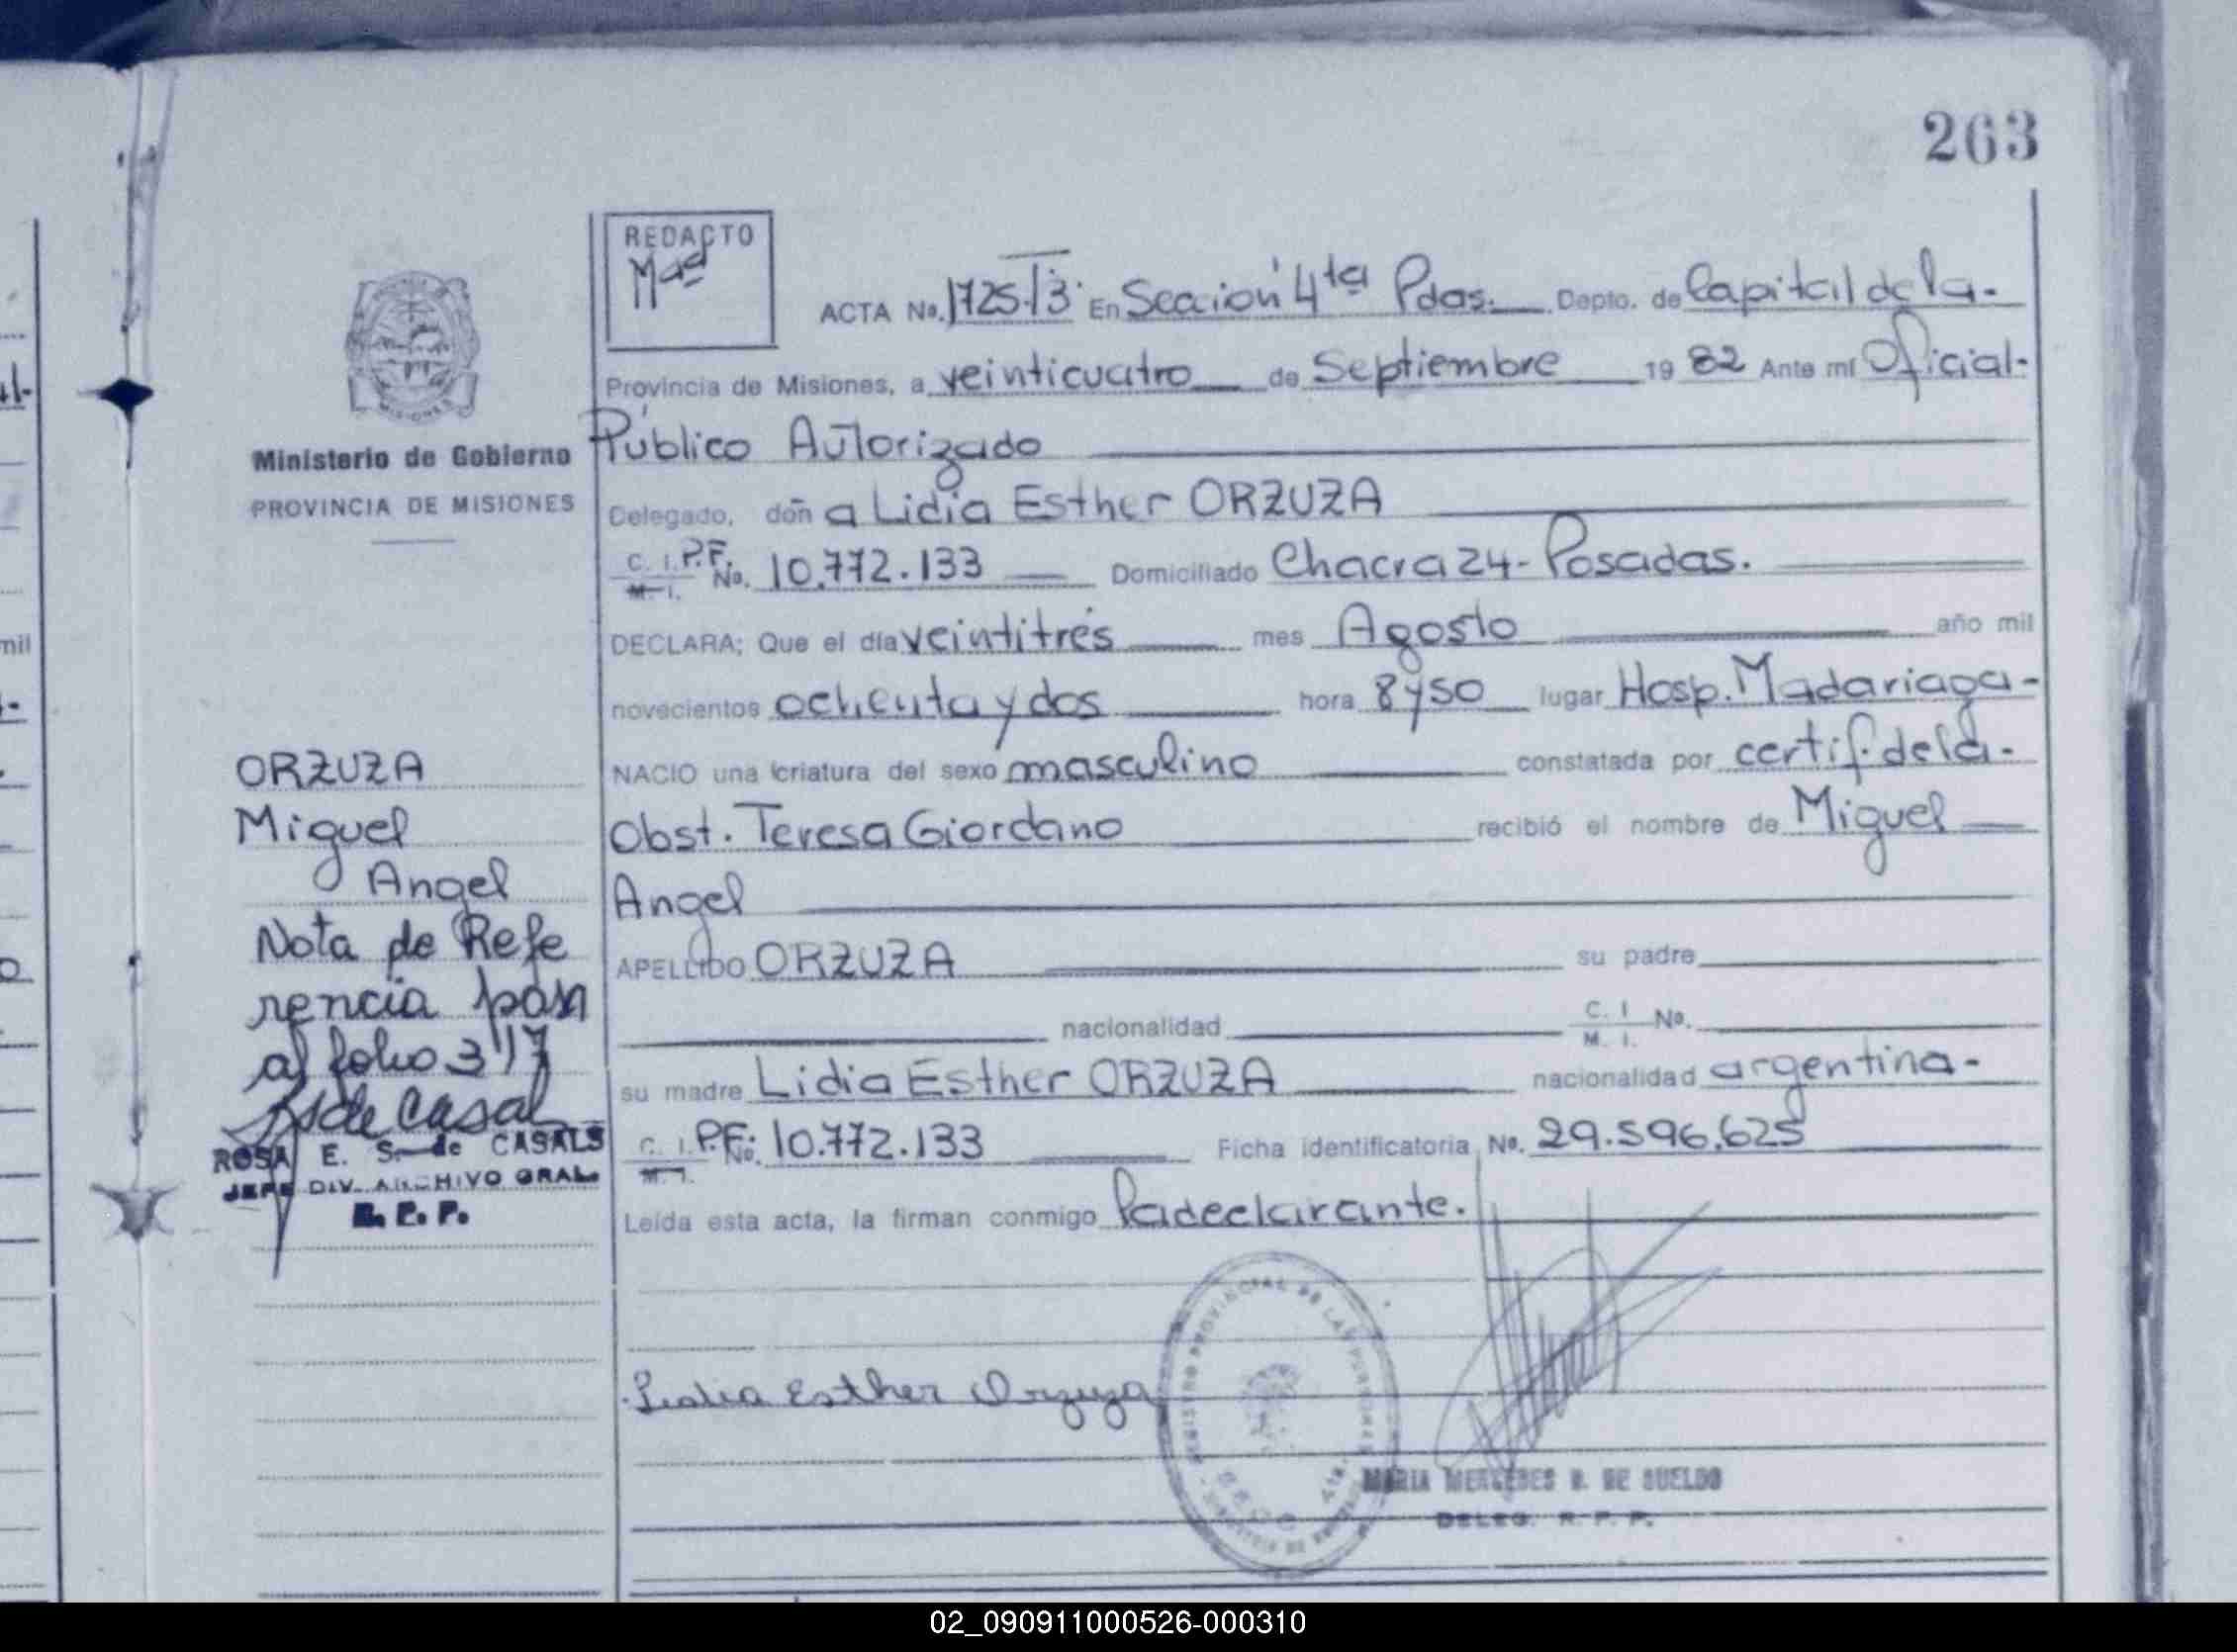 263
REDACTO
ACTA No. 1725-T3 En Sección 4ta Pdas. Depto. de Capital de la-
Provincia de Misiones, a veinticuatro de Septiembre 1982 Ante mí Oficial-
Ministerio de Gobierno
PROVINCIA DE MISIONES
Público Autorizado
Delegado, doña Lidia Esther ORZUZA
C. I. P.F. M. I. No. 10.772.133 Domiciliado Chacra 24- Posadas.
DECLARA; Que el día veintitrés mes Agosto año mil
novecientos ochenta y dos hora 8y50 lugar Hosp. Madariaga-
NACIO una criatura del sexo masculino constatada por certif. de la-
Obst. Teresa Giordano recibió el nombre de Miguel
Angel
APELLIDO ORZUZA su padre
nacionalidad C. I M. I. No.
su madre Lidia Esther ORZUZA nacionalidad argentina-
C. I. P.F. M. I. No. 10.772.133 Ficha identificatoria No. 29.596.625
Leída esta acta, la firman conmigo la declarante.
ORZUZA
Miguel
Angel
Nota de Refe
rencia
al folio 317
ROSA E. S. de CASALS
JEFE DIV. ARCHIVO GRAL.
R. P. P.
Lidia Esther Orzuza
REGISTRO PROVINCIAL DE LAS PERSONAS
MARIA MERCEDES B. DE SUELDO
DELEG. R. P. P.
02_090911000526-000310